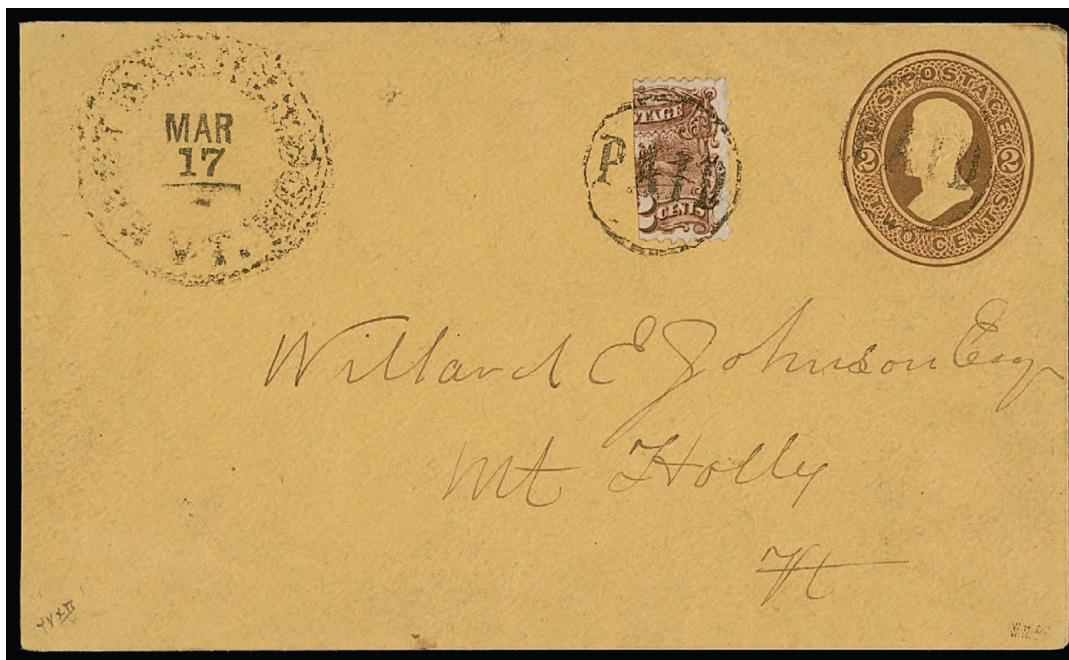 MAR
17
VT.
TAGE
CENTS
PAID
U.S. POSTAGE
2 2
TWO CENTS
AID
Willard E Johnson Esq
Mt Holly
Vt